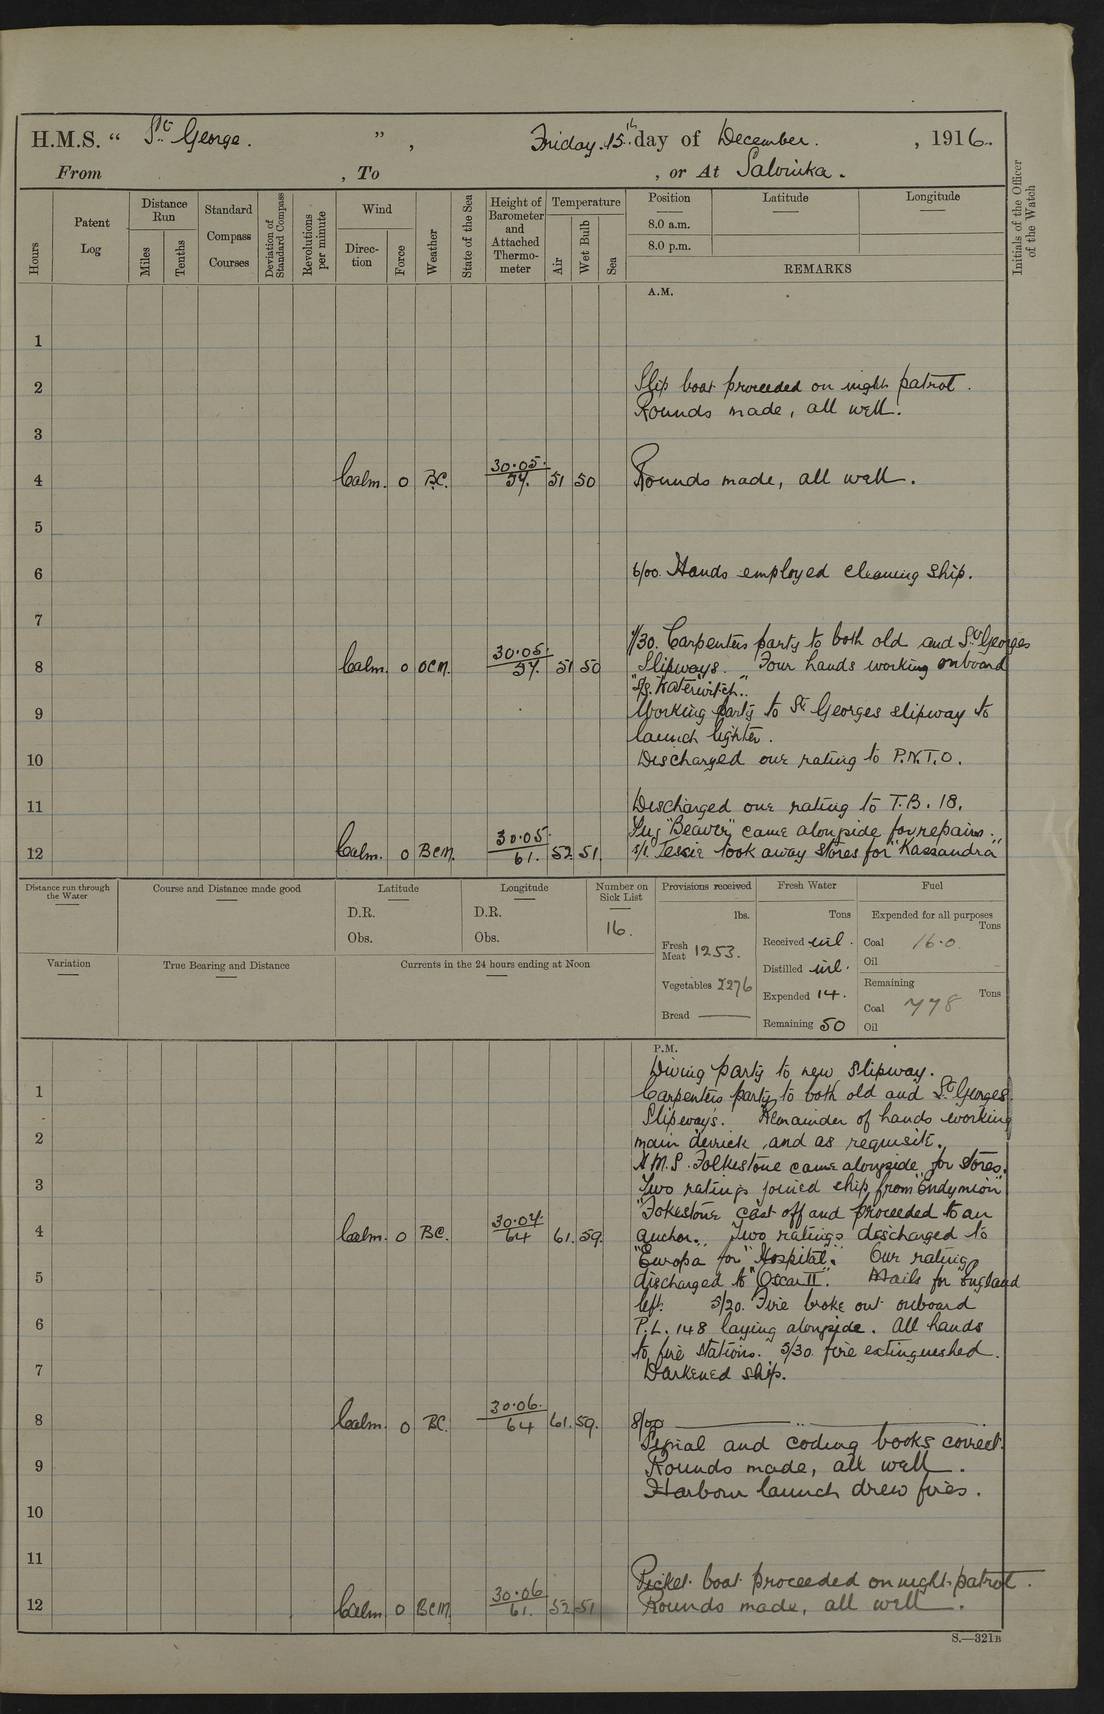 H.M.S. “ St George. ”, Friday. 15th day of December. , 1916.
From , To , or At Salonika.
Hours
Patent Log
Distance Run
Miles
Tenths
Standard Compass Courses
Deviation of Standard Compass
Revolutions per minute
Wind
Direction
Force
Weather
State of the Sea
Height of Barometer and Attached Thermometer
Temperature
Air
Wet Bulb
Sea
Position
8.0 a.m.
8.0 p.m.
Latitude
Longitude
REMARKS
Initials of the Officer of the Watch
A.M.
1
2 Slip boat proceeded on night patrol.
Rounds made, all well.
3
4 Calm. 0 B.C. 30.05. 57. 51 50 Rounds made, all well.
5
6 6/00. Hands employed cleaning ship.
7
7/30. Carpenters party to both old and St Georges
8 Calm. 0 OCM. 30.05. 57. 51 50 Slipways. Four hands working onboard
"S/S. Waterwitch".
9 Working party to St Georges slipway to
launch lighter.
10 Discharged one rating to P.N.T.O.
11 Discharged one rating to T.B. 18.
Tug "Beaver" came alongside for repairs.
12 Calm. 0 BCM. 30.05. 61. 52 51. S/L Tessie took away stores for "Kassandra"
Distance run through the Water
Course and Distance made good
Latitude
D.R.
Obs.
Longitude
D.R.
Obs.
Number on Sick List
16.
Provisions received
lbs.
Fresh Meat 1253.
Vegetables 2276
Bread
Fresh Water
Tons
Received nil.
Distilled nil.
Expended 14.
Remaining 50
Fuel
Expended for all purposes
Tons
Coal 16.0
Oil
Remaining
Tons
Coal 778
Oil
Variation
True Bearing and Distance
Currents in the 24 hours ending at Noon
P.M.
Diving party to new slipway.
1 Carpenters party to both old and St Georges
Slipways. Remainder of hands working
2 main derrick, and as requisite.
H.M.S. Folkestone came alongside for stores.
3 Two ratings joined ship from "Endymion"
"Fokestone cast off and proceeded to an
4 Calm. 0 BC. 30.07 64 61. 59. anchor. Two ratings discharged to
"Europa" for "Hospital". One rating
5 discharged to "Oscar II". Mails for England
left. 5/20. Fire broke out onboard
6 P.L. 148 laying alongside. All hands
to fire stations. 5/30 fire extinguished.
7 Darkened ship.
8 Calm. 0 BC. 30.06. 64 61. 59. 8/00
Signal and coding books correct.
9 Rounds made, all well.
Harbour launch drew fires.
10
11
Picket boat proceeded on night patrol.
12 Calm 0 BCM 30.06 61. 52 51 Rounds made, all well.
S.—321B